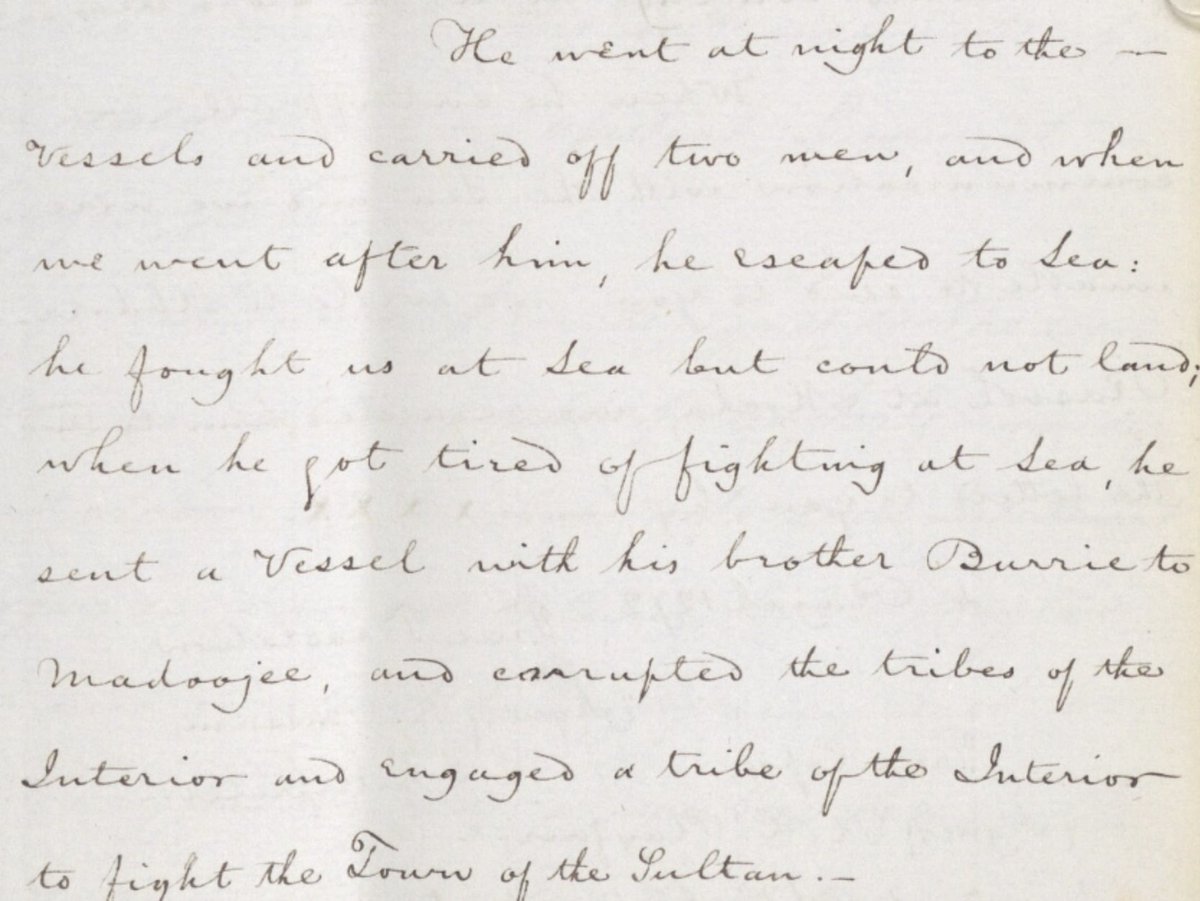 He went at night to the —
Vessels and carried off two men, and when
we went after him, he escaped to Sea:
he fought us at Sea but could not land;
when he got tired of fighting at Sea, he
sent a Vessel with his brother Burrie to
Madoojee, and corrupted the tribes of the
Interior and engaged a tribe of the Interior
to fight the Town of the Sultan. —